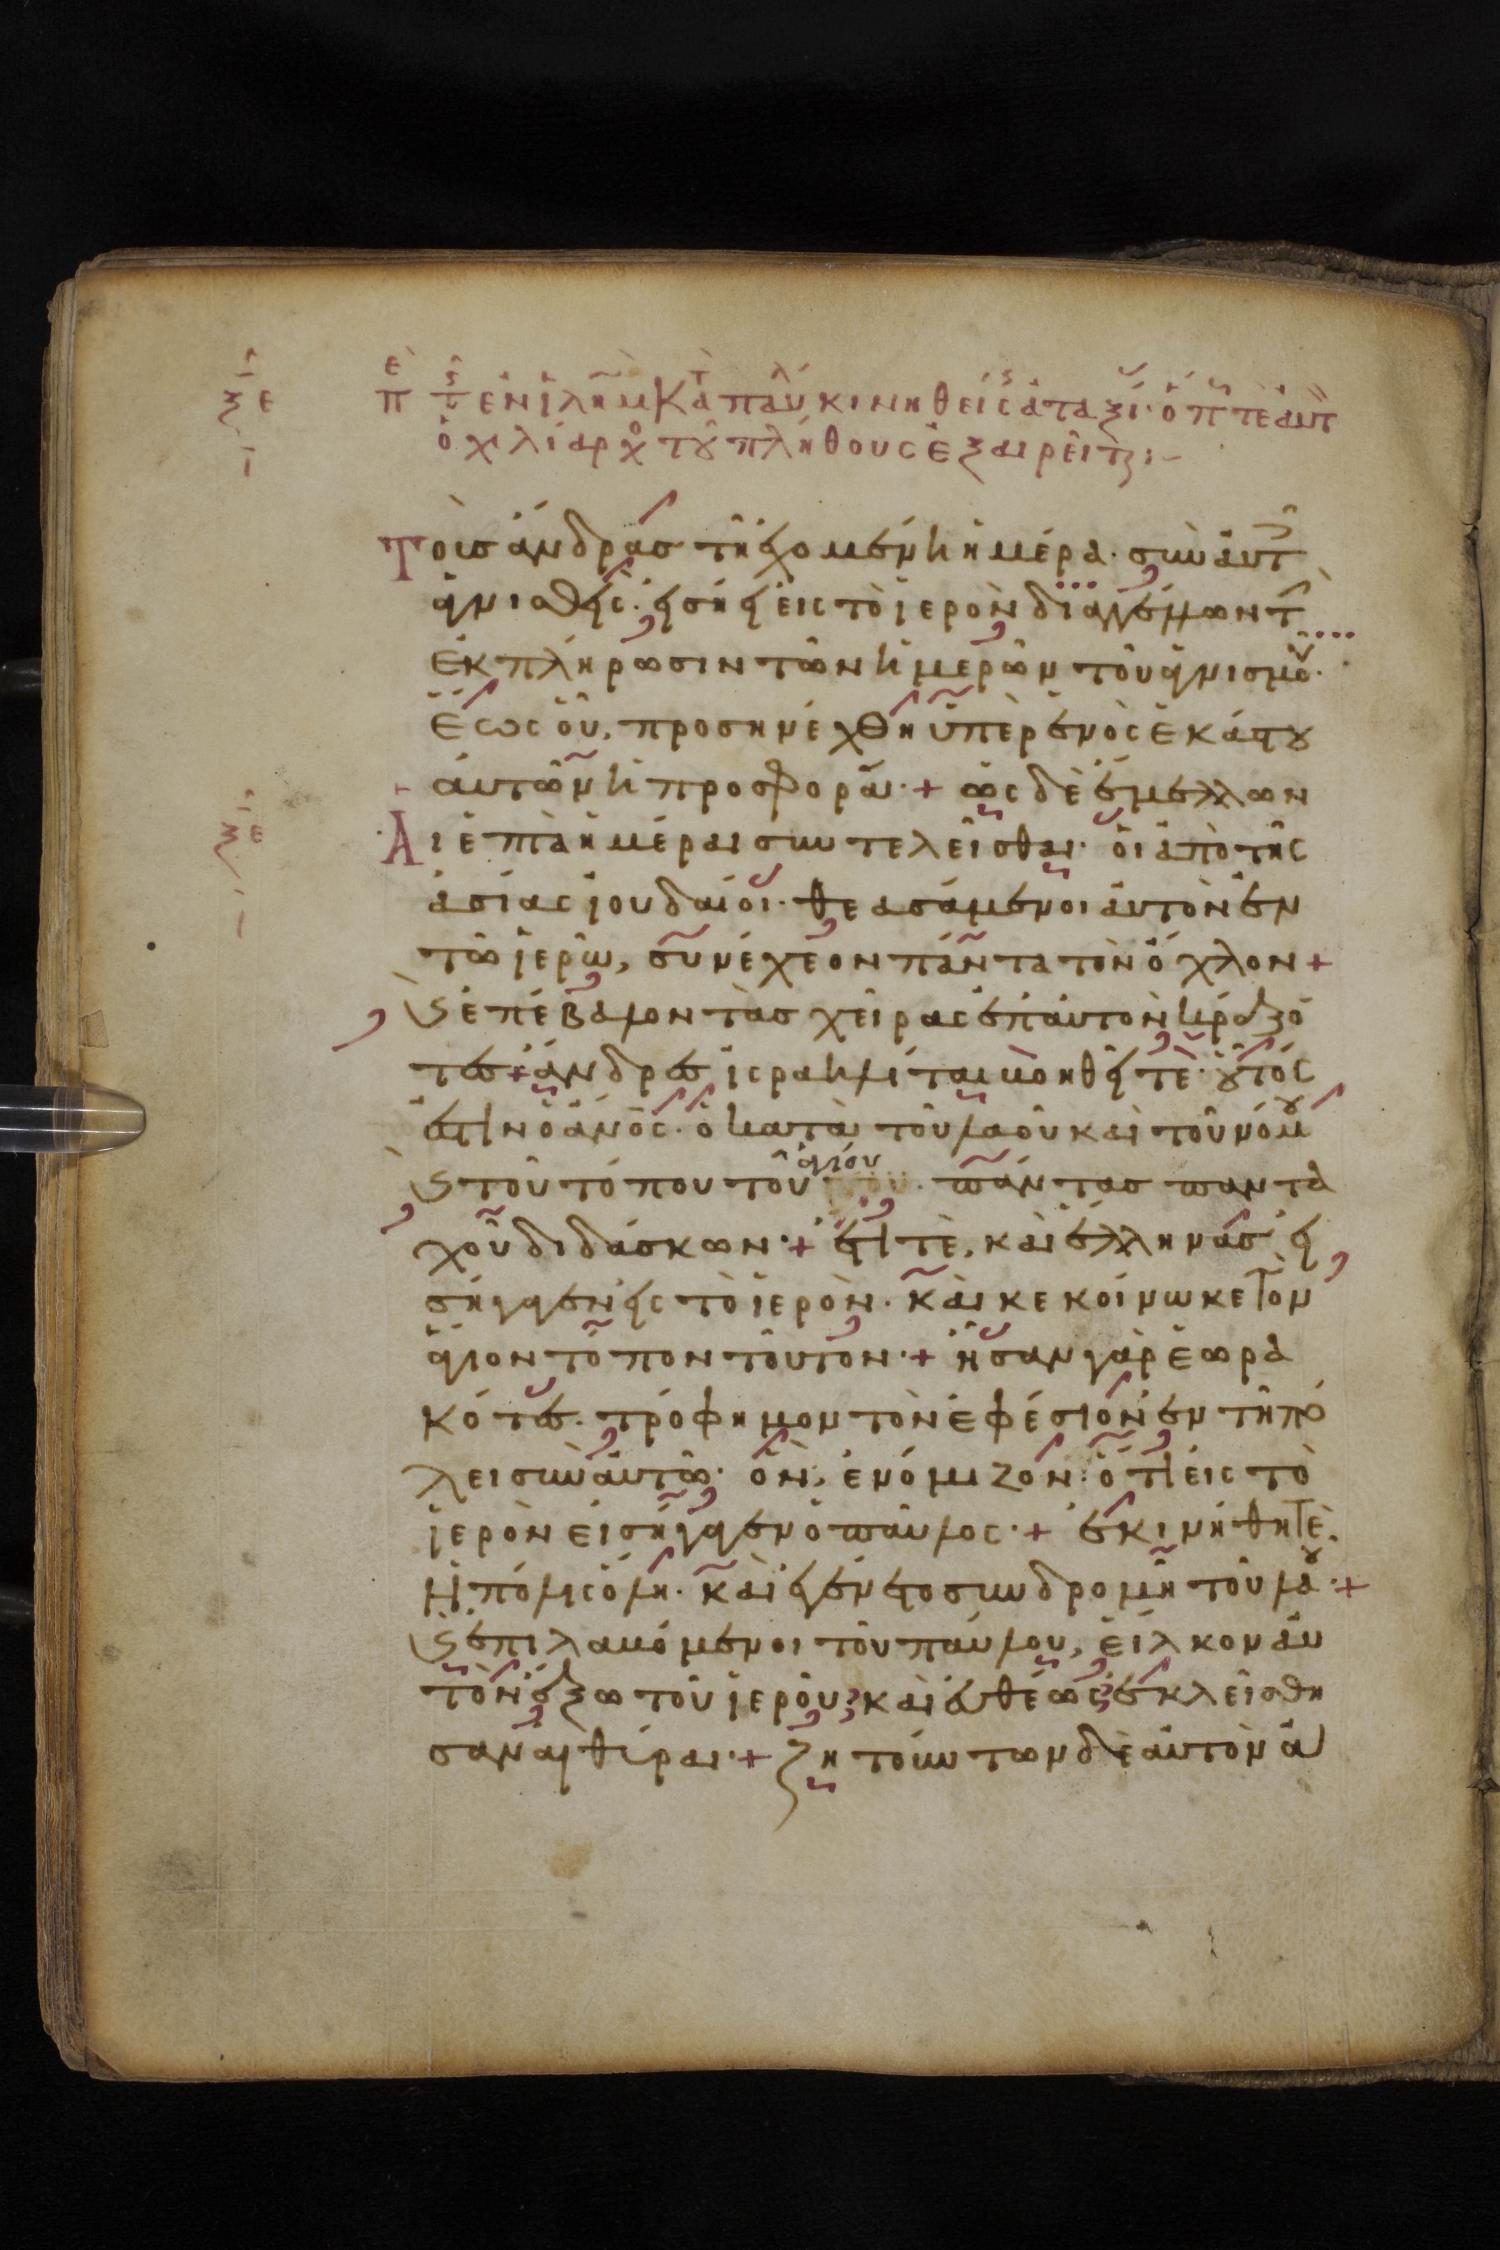 ξε
π τ ἐν ἱλημ Κατὰ παύλ κινηθείς ἀταξί· ὅπ τε αυτ
ὁ χιλίαρχ τοῦ πλήθους ἐξαιρεῖτ
Τοὺς ἄνδρας τῆ ἐχομένη ἡμέρα· σὺν αὐτ
ἁγνισθεὶς· εἰσήει εἰς τὸ ἱερὸν διαγγέλλων τ
ἐκπλήρωσιν τῶν ἡμερῶν τοῦ ἁγνισμοῦ·
ἕως οὗ, προσηνέχθη ὑπὲρ ἑνὸς ἑκάστου
αὐτῶν ἡ προσφορά· + ὡς δὲ ἔμελλον
Αἱ ἑπτὰ ἡμέραι συντελεῖσθαι· οἱ ἀπὸ τῆς
ἀσίας ἰουδαίοι· θεασάμενοι αὐτὸν ἐν
τῶ ἱερῶ, συνέχεον πάντα τὸν ὄχλον +
ϗ ἐπέβαλον τὰς χεῖρας ἐπ αὐτὸν κράζο
τες + ἄνδρες ἰσραηλίται βοηθεῖτὲ· οὗτός
ἐστιν ὁ ἄνος· ὁ κατὰ τοῦ λαοῦ καὶ τοῦ νόμου
ϗ τοῦ τόπου τοῦ ἁγίου · πάντας παντα
χοῦ διδάσκων· + ἔτι τὲ, καὶ ἕλληνας εἰ
σήγαγεν εἰς τὸ ἱερὸν· καὶ κεκοίνωκε τὸν
ἅγιον τόπον τοῦτον· + ἦσαν γὰρ ἑωρα
κότες· τρόφημον τὸν ἐφέσιον ἐν τῆ πό
λει σὺν αὐτῶ· ὃν, ἐνόμιζον· ὅτι εἰς τὸ
ἱερὸν εἰσήγαγεν ὁ παῦλος· + ἐκινήθη τὲ
ἡ πόλις ὅλη· καὶ ἐγένετο συνδρομὴ τοῦ λαοῦ· +
ϗ ἐπιλαβόμενοι τοῦ παύλου, εἷλκον αὐ
τὸν ἔξω τοῦ ἱεροῦ· καὶ εὐθέως ἐκλείσθη
σαν αἱ θύραι· + ζητούντων δὲ αὐτὸν ἀ